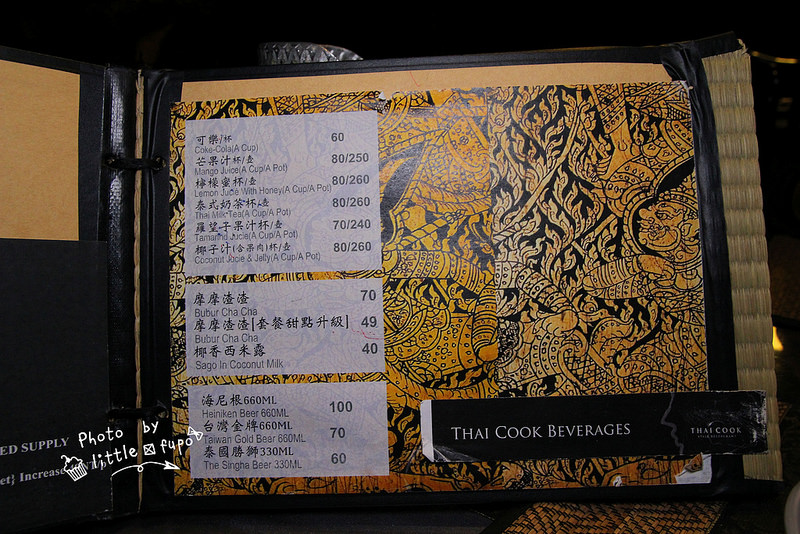 可樂/杯 60
Coke-Cola(A Cup)
芒果汁杯/壺 80/250
Mango Juice(A Cup/A Pot)
檸檬蜜杯/壺 80/260
Lemon Juice With Honey(A Cup/A Pot)
泰式奶茶杯/壺 80/260
Thai Milk Tea(A Cup/A Pot)
羅望子果汁杯/壺 70/240
Tamarind Juice(A Cup/A Pot)
椰子汁(含果肉)杯/壺 80/260
Coconut Juice & Jelly(A Cup/A Pot)
摩摩渣渣 70
Bubur Cha Cha
摩摩渣渣[套餐甜點升級] 49
Bubur Cha Cha
椰香西米露 40
Sago In Coconut Milk
海尼根660ML 100
Heiniken Beer 660ML
台灣金牌660ML 70
Taiwan Gold Beer 660ML
泰國勝獅330ML 60
The Singha Beer 330ML
THAI COOK BEVERAGES
THAI COOK
ED SUPPLY
et} Increase
Photo by
little fupo